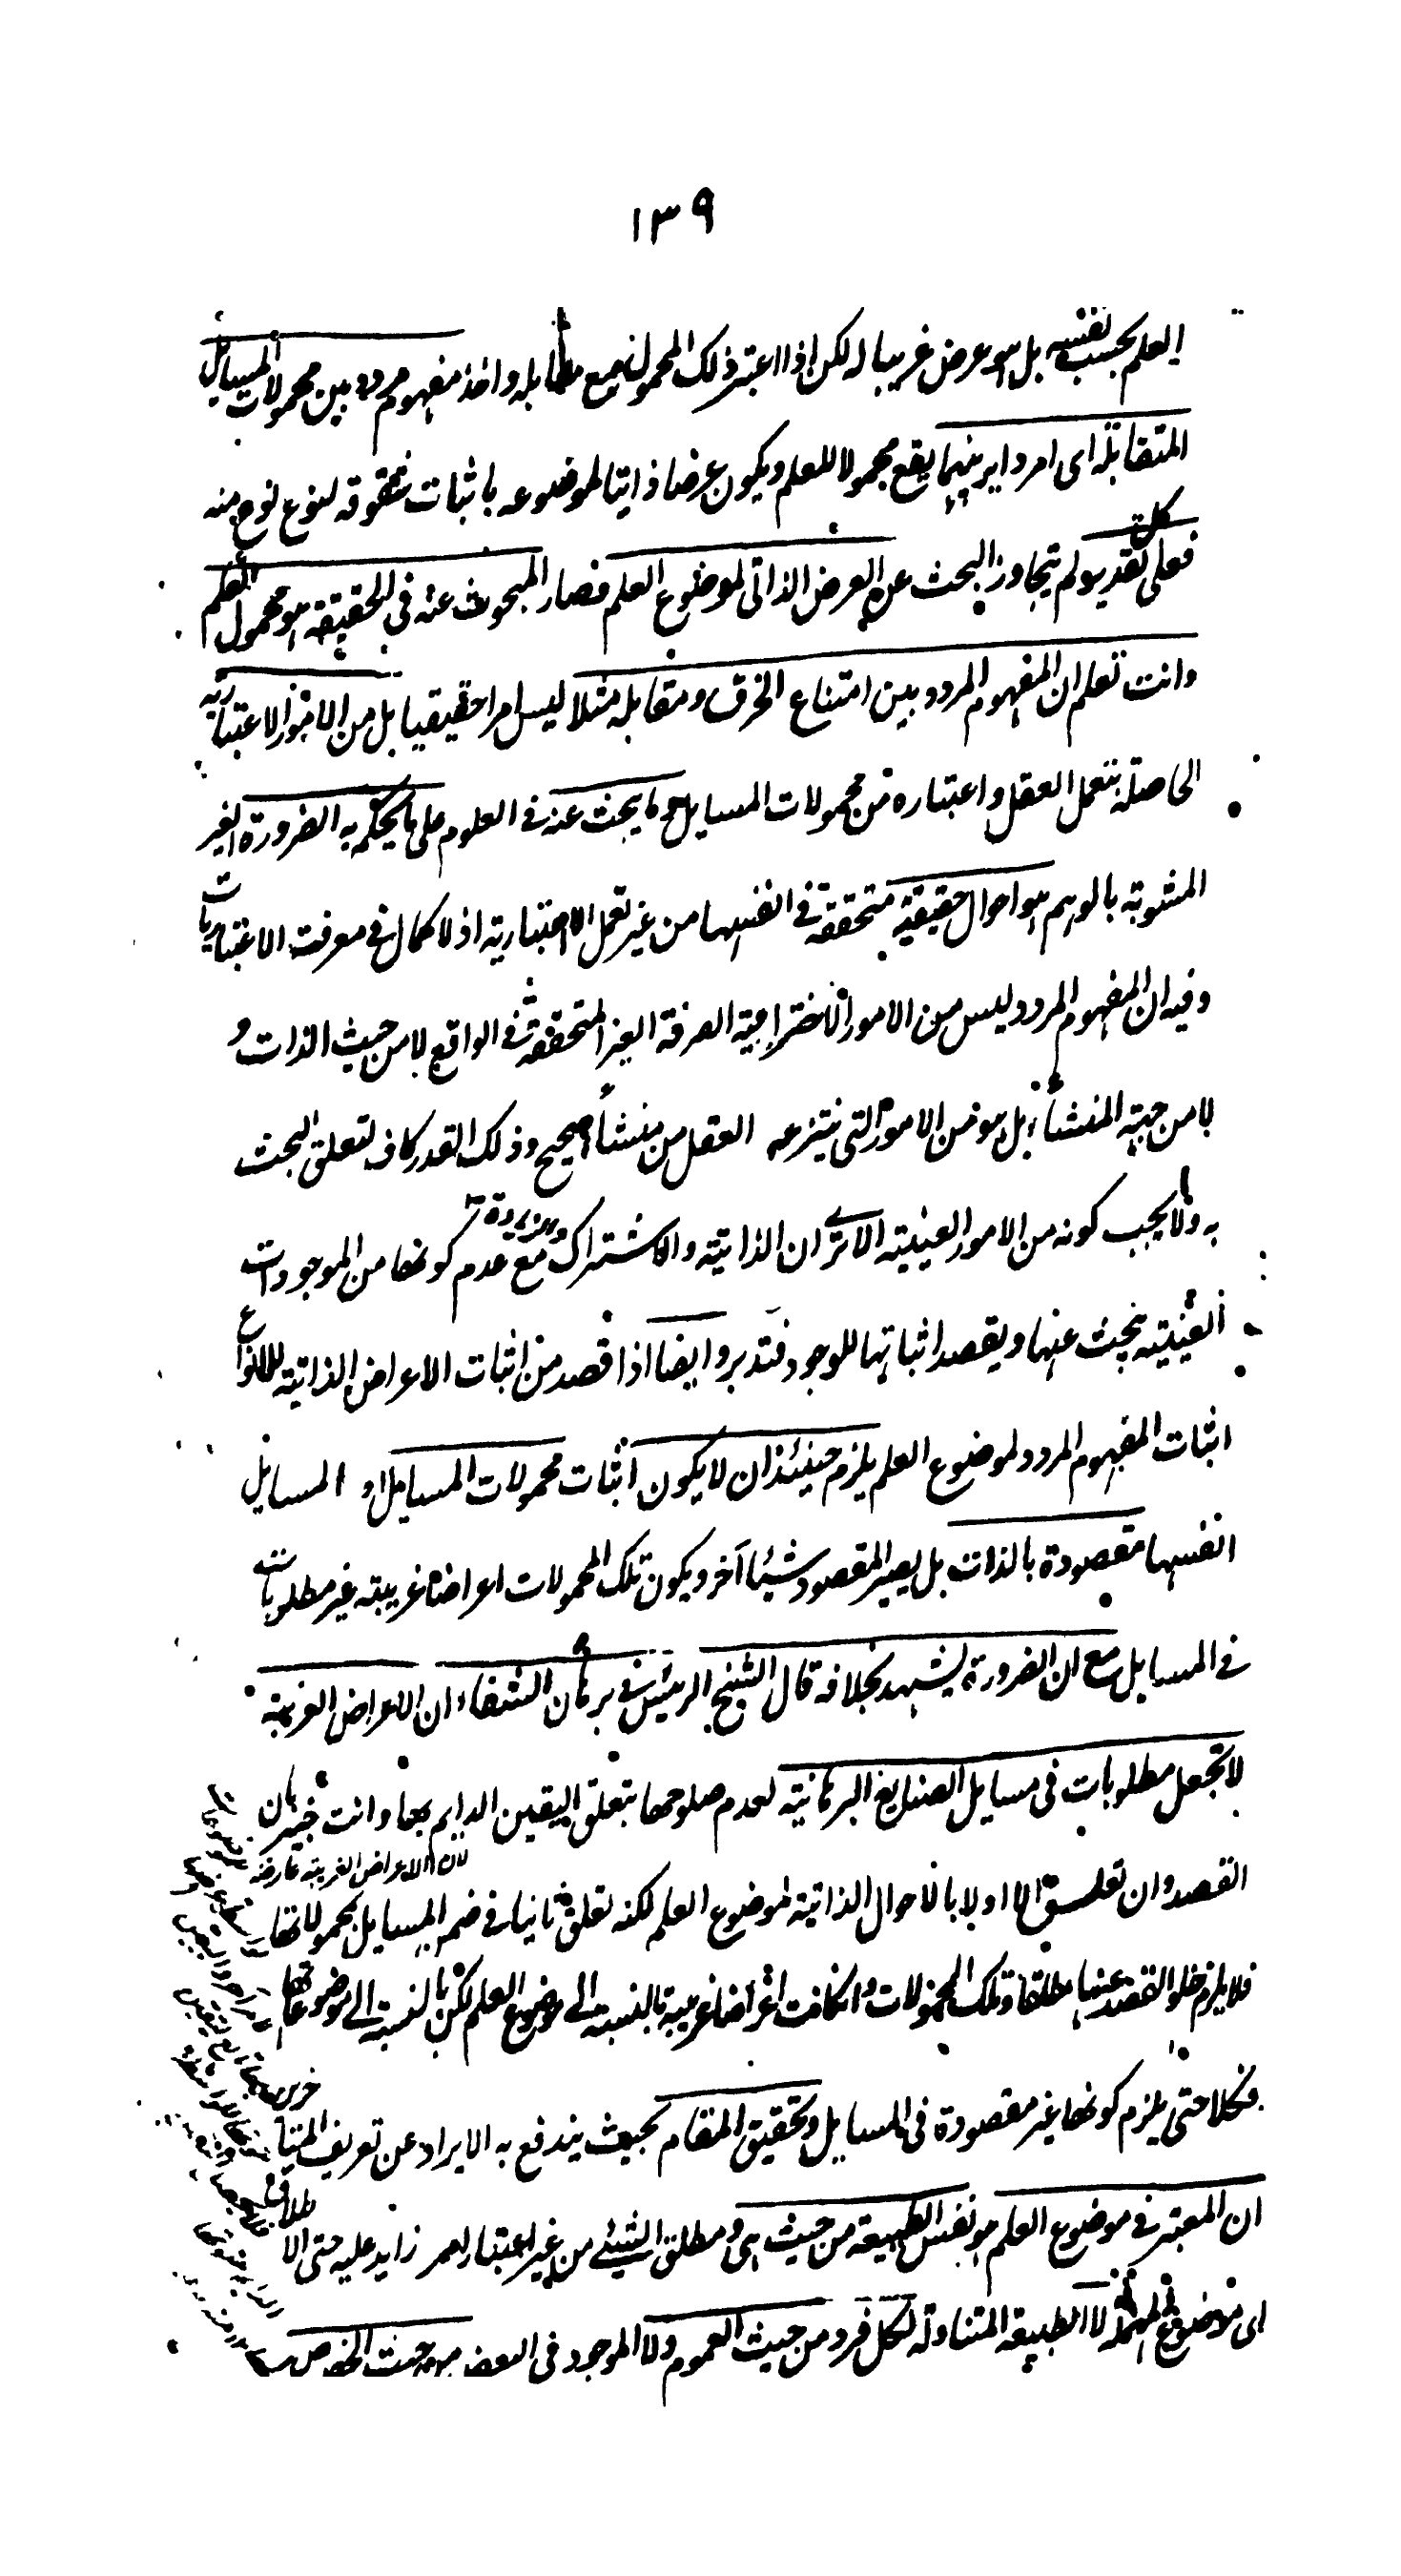 ١٣٩
العلم بحسب نفسه بل هو عرض غريب له لكن اذا اعتبر ذلك المحمول مع مقابله واخذ مفهوم مردد بين محمولات المسايل
المتقابلة اى امر داير بينهما يقع محمولا للعلم ويكون عرضا ذاتيا لموضوعه باثبات شقوقه لنوع نوع منه
فعلى كل تقدير لم يتجاوز البحث عن العرض الذاتى لموضوع العلم فصار المبحوث عنه فى الحقيقة هو محمول العلم
وانت تعلم ان المفهوم المردد بين امتناع الخرق ومقابله مثلا ليس امرا حقيقيا بل من الامور الاعتبارية
الحاصلة بتعمل العقل واعتباره من محمولات المسايل وما يبحث عنه فى العلوم على ما يحكم به الضرورة الغير
المشوبة بالوهم هو احوال حقيقية متحققة فى انفسها من غير تعمل الاختبارية اذ لا كمال فى معرفت الاعتباريات
وفيه ان المفهوم المردد ليس من الامور الاختراعية الصرفة الغير المتحققة فى الواقع لا من حيث الذات و
لا من جهة المنشأ بل هو من الامور التى ينتزعه العقل من منشأ صحيح وذلك القدر كاف لتعلق البحث
به ولا يجب كونه من الامور العينية الا ترى ان الذاتية والاشتراك مع عدم كونها من الموجودات
العينية يبحث عنها ويقصد اثباتها للوجود فتدبر وايضا اذا قصد من اثبات الاعراض الذاتية للانواع
اثبات المفهوم المردد لموضوع العلم يلزم حينئذ ان لا يكون اثبات محمولات المسايل او المسايل
انفسها مقصودة بالذات بل يصير المقصود شيئا آخر ويكون تلك المحمولات اعراضا غريبة غير مطلوبات
فى المسايل مع ان الضرورة يشهد بخلافه قال الشيخ الرئيس فى برهان الشفاء ان الاعراض الغريبة
لا تجعل مطلوبات فى مسايل الصنايع البرهانية لعدم صلوحها بتعلق اليقين الدايم بها وانت خبير بان
لان الاعراض الغريبة عارضة
القصد وان تعلق اولا بالاحوال الذاتية لموضوع العلم لكنه تعلق ثانيا فى ضم المسايل بمحمولاتها
فلا يلزم خلو القصد عنها مطلقا وتلك المحمولات وان كانت اعراضا غريبة بالنسبة الى موضوع العلم لكن بالنسبة الى موضوعاتها
فكلا حتى يلزم كونها غير مقصودة فى المسايل وتحقيق المقام بحيث يندفع به الايراد عن تعريف المتأخرين
ان المعتبر فى موضوع العلم هو نفس الطبيعة من حيث هى ومطلق الشيئ من غير اعتبار امر زايد عليه حتى الاطلاق
اى موضوع المهملة لا الطبيعة المتناولة لكل فرد من حيث العموم ولا الموجود فى البعض من حيث الخصوص